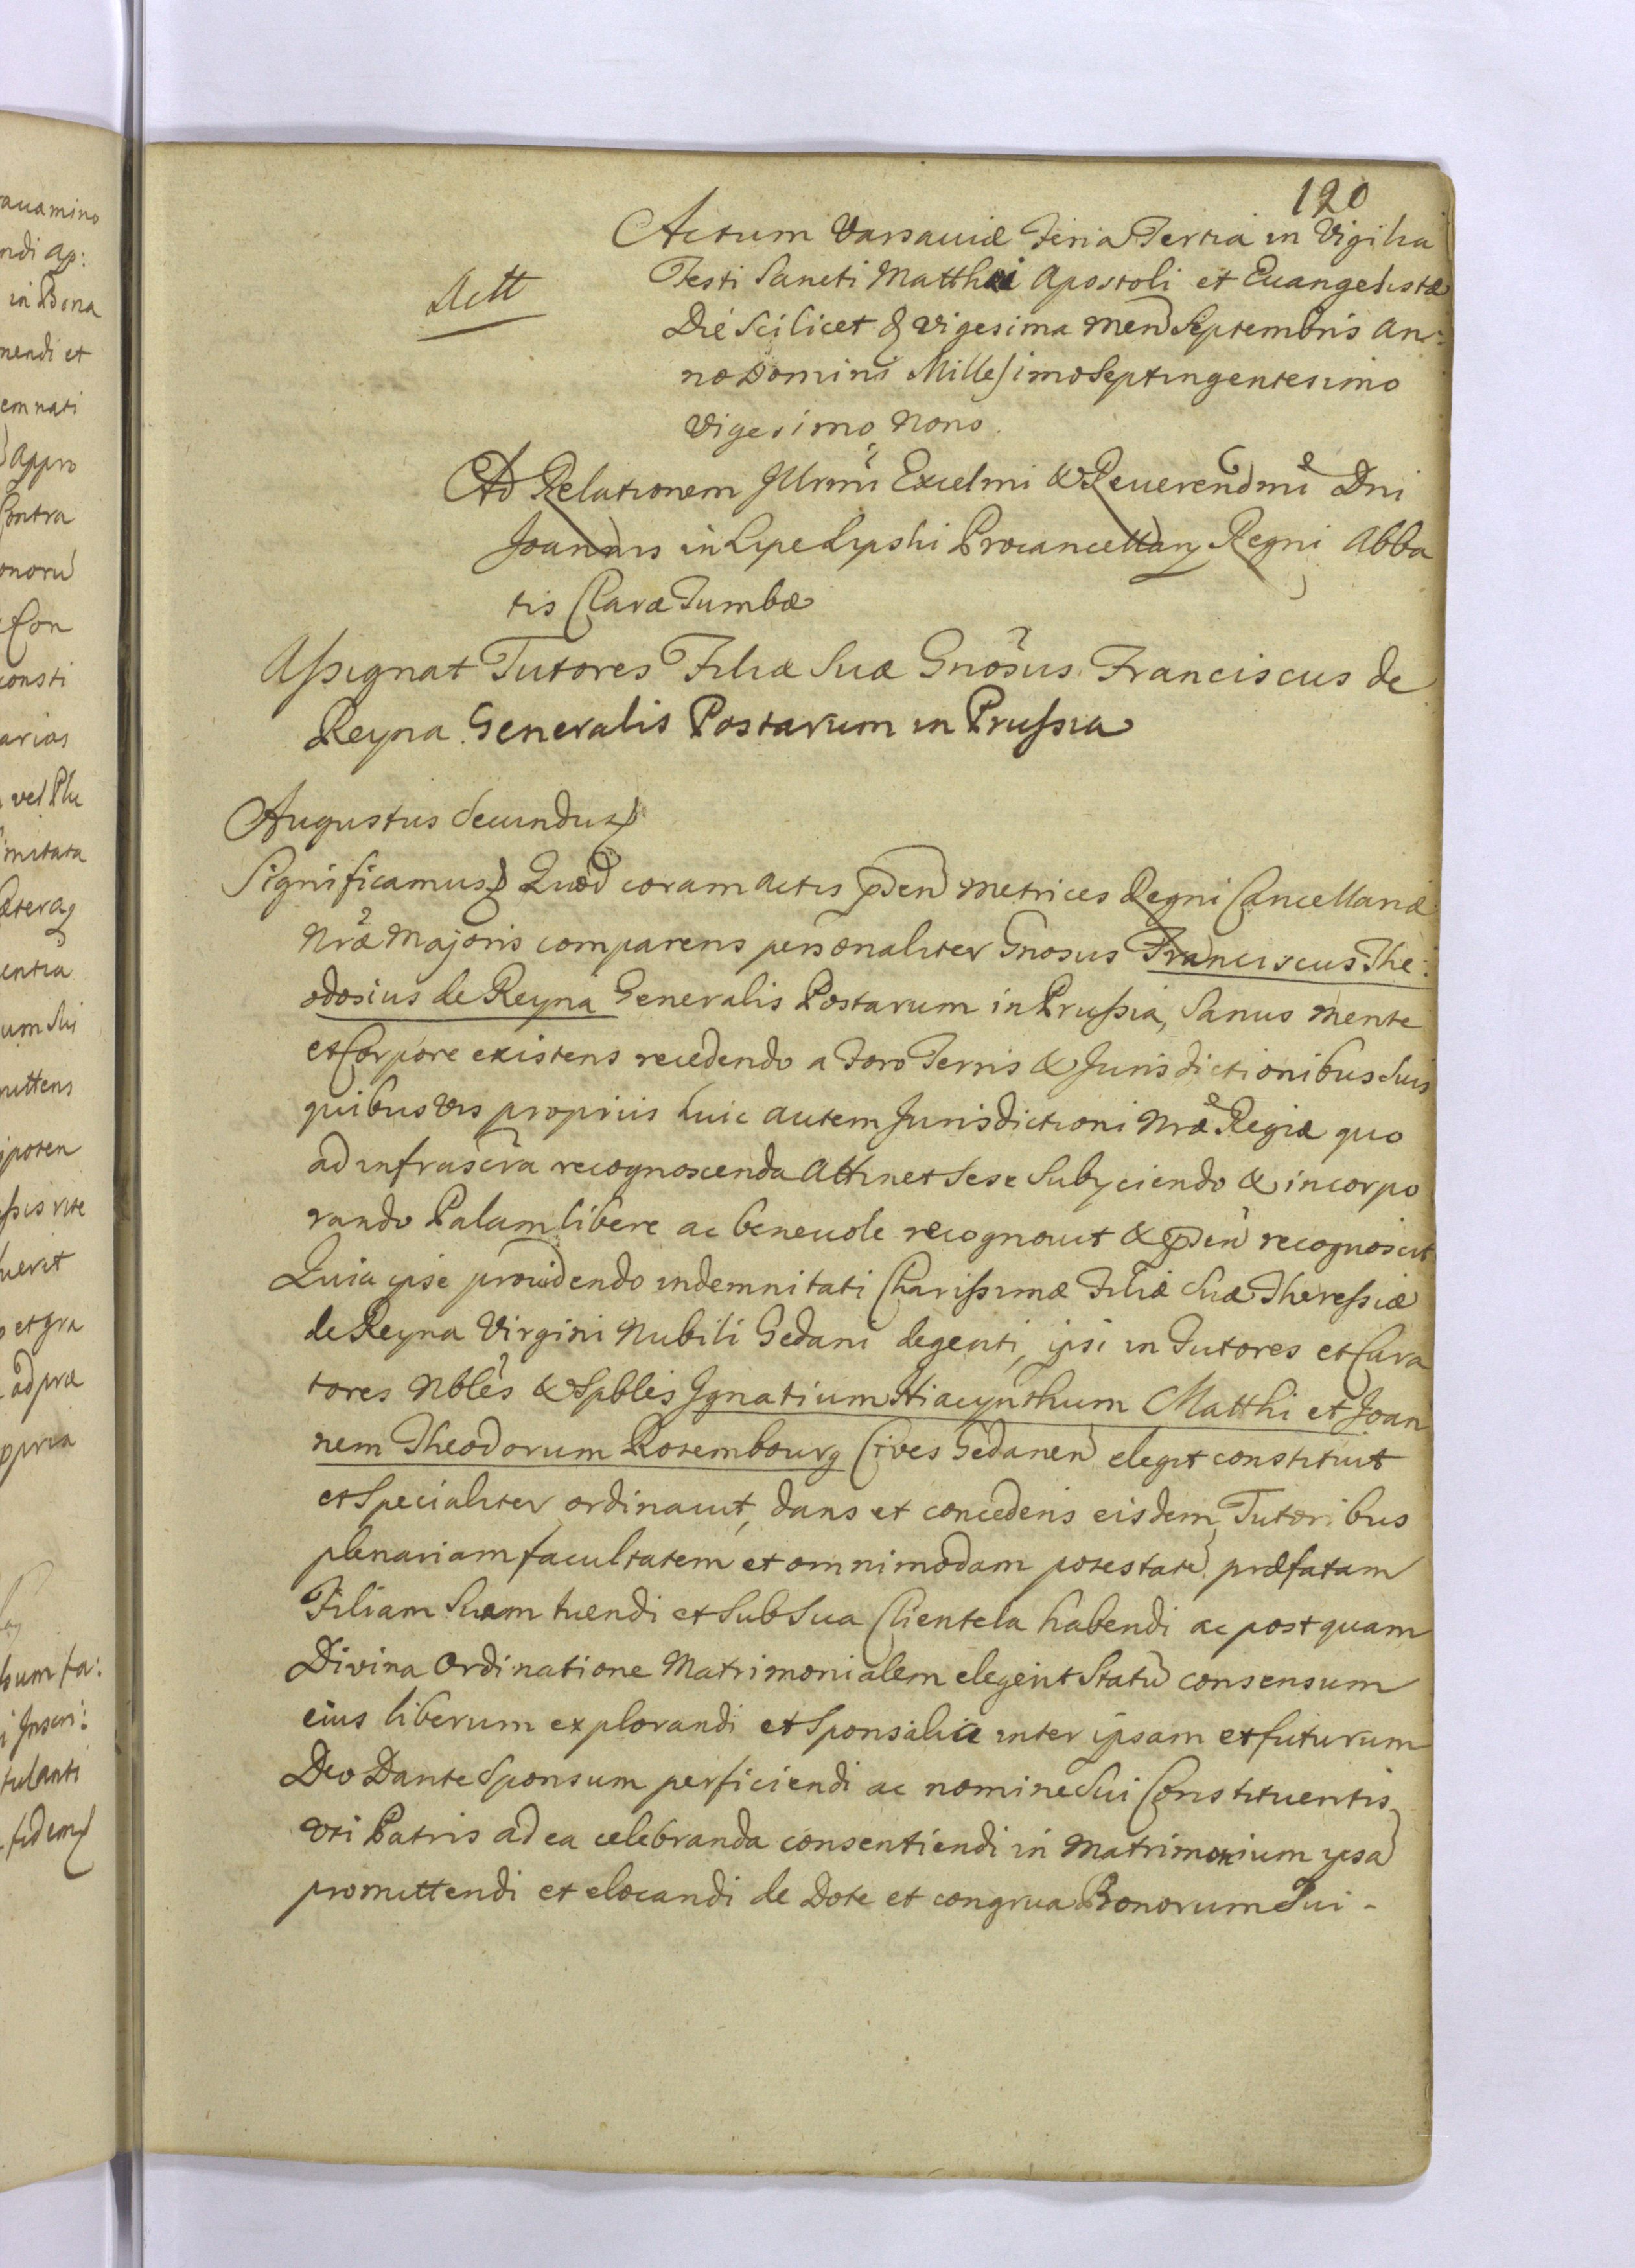 120
Actum Varsaviæ Feria Tertia in Vigilia
Festi Sancti Matthæi Apostoli et Euangelistæ
Actt
Die Scilicet Vigesima Men Septembris An:
no Domini Millesimo Septingentesimo
Vigesimo Nono.
Ad Relationem Illrmi Excelmi & Reuerendmi Dni
Joannis in Lipe Lipski Procancellarÿ Regni Abba
tis Claræ Tumbæ
Assignat Tutores Filiæ Suæ Gnosus Franciscus de
Reyna Generalis Postarum in Prussia
Augustus Secundus
Significamus Quod coram actis pñen Metrices Regni Cancellariæ
Nræ Majoris comparens personaliter Gnosus Franciscus The:
odosius de Reyna Generalis Postarum in Prussia, Sanus mente
et Corpore existens recedendo a Foro Terris & Jurisdictionibus Suis
quibusvis propriis huic autem Jurisdictioni Nræ Regiæ quo
ad infrascra recognoscenda Attinet Sese Subÿciendo & incorpo
rando Palam libere ac beneuole recognouit & pñen recognoscit
Quia ipse prouidendo indemnitati Charissimæ Filiæ Suæ Theressiæ
de Reyna Virgini Nubili Gedani degenti, ipsi in Tutores et Cura
tores Nbles & Spbles Ignatium Hiacynthum Matthi et Joan
nem Theodorum Rosembourg Cives Gedanen elegit constituit
et Specialiter ordinauit, dans et concedens eisdem Tutoribus
plenariam facultatem et omnimodam potestate præfatam
Filiam Suam tuendi et Sub Sua Clientela habendi ac postquam
Divina Ordinatione Matrimonialem elegerit Statu consensum
eius liberum explorandi et Sponsalia inter ipsam et futurum
Deo Dante Sponsum perficiendi ac nomine Sui Constituentis
uti Patris ad ea celebranda consentiendi in Matrimonium ipsa
promittendi et elocandi de Dote et congrua Bonorum Sui -